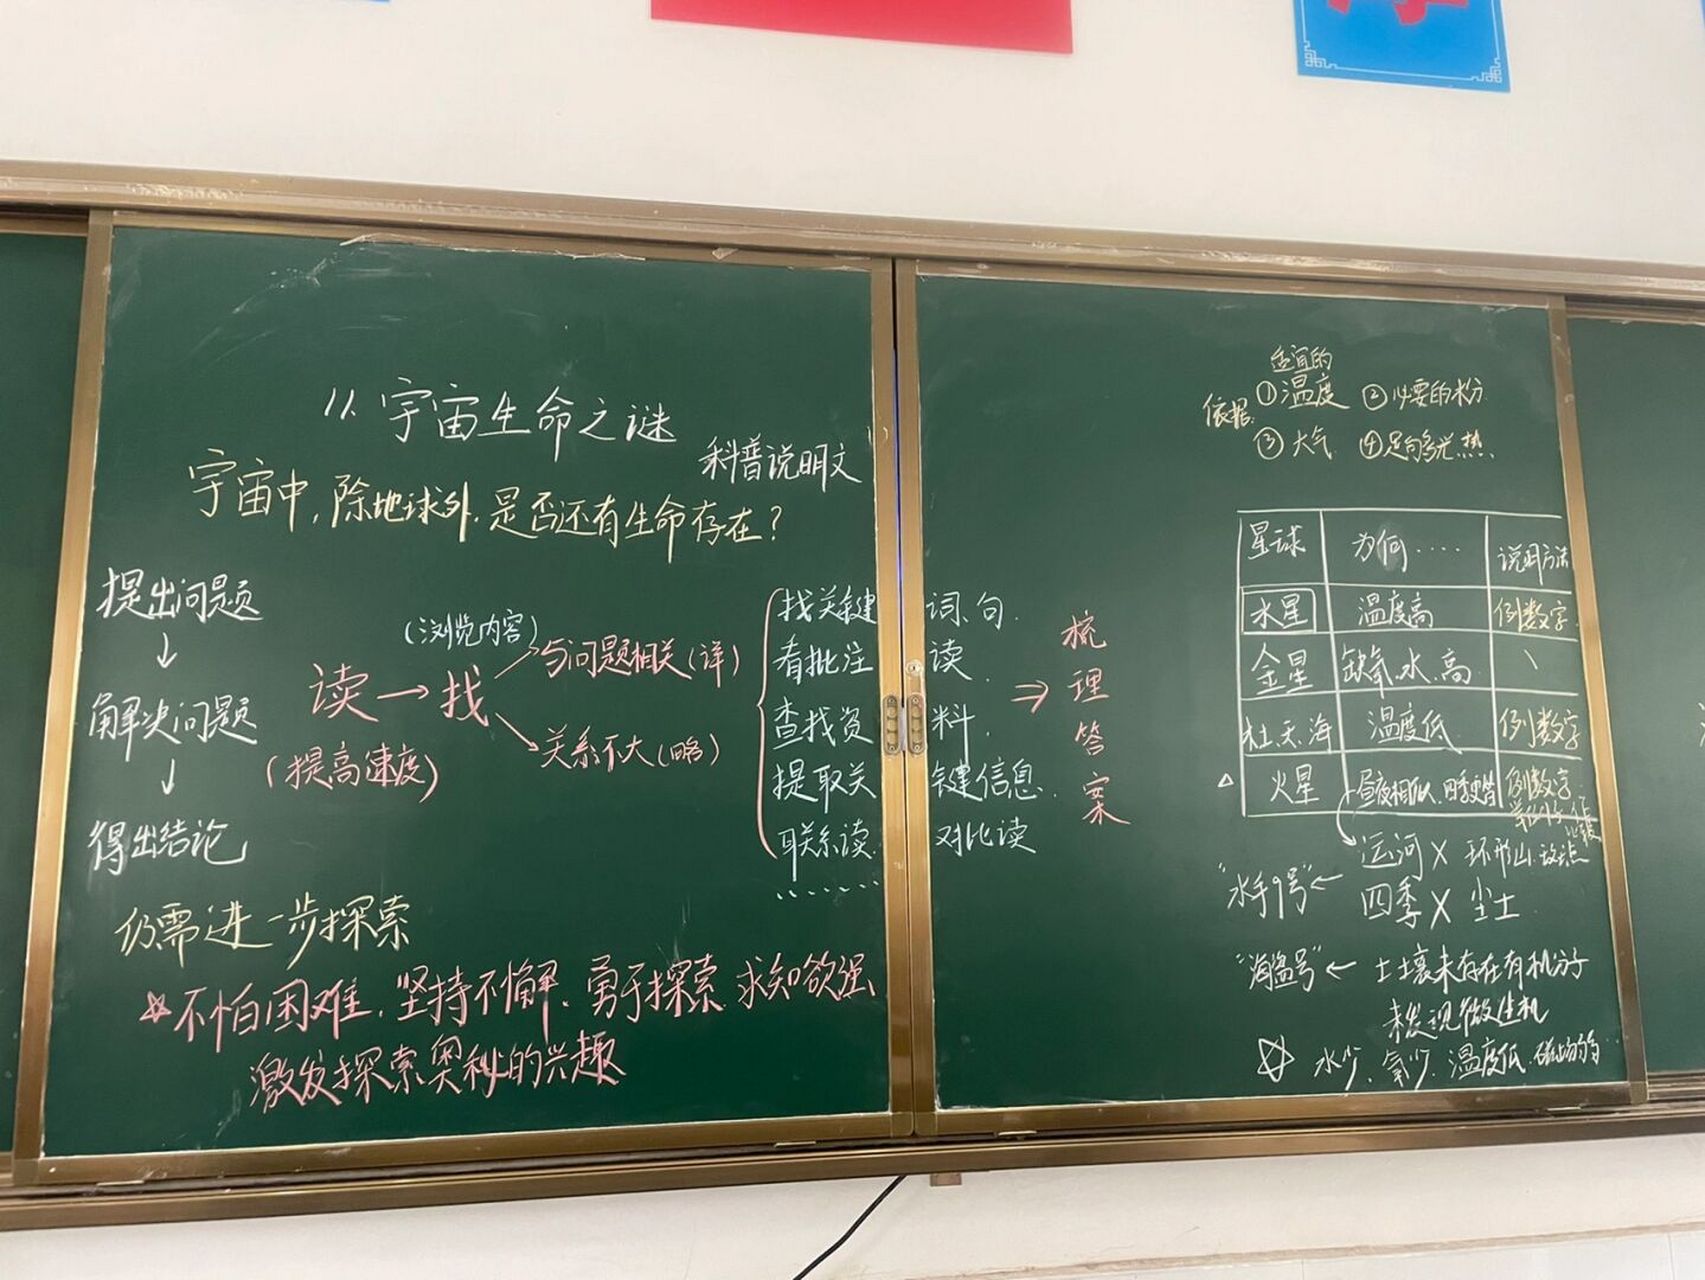 11. 宇宙生命之谜
科普说明文
宇宙中，除地球外，是否还有生命存在？
提出问题
↓
解决问题
↓
得出结论
(浏览内容)
读→找
(提高速度)
与问题相关(详)
关系不大(略)
找关键词、句.
看批注读.
查找资料.
提取关键信息.
联系读对比读
......
⇒梳理答案
仍需进一步探索
☆不怕困难，坚持不懈，勇于探索，求知欲强
激发探索奥秘的兴趣
适宜的
依据: ①温度 ②必要的水分
③大气 ④足够多光、热.
星球 为何.... 说明方法
水星 温度高 例数字
金星 缺氧、水、高 \
杜、天、海 温度低 例数字
△ 火星 昼夜相似、四季更替 例数字
运河 X 环形山、
"水手9号"← 四季 X 尘土
"海盗号"← 土壤未存在有机分子
未发现微生机
☆ 水少、氧少、温度低、磁场弱